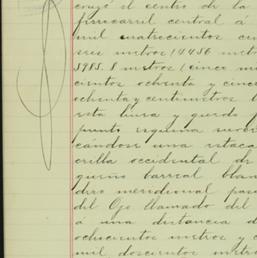 cruzó el centro de la
ferrocarril central á
mil cuatrocientos cin
seis metros 14456 metr
5785.8 metros (cinco m
cientos ochenta y cinc
ochenta y centímetros
esta línea y queda
punto
cándose una estaca
orilla occidental de
queño barreal blan
dero meridional para
del Ojo llamado del
a una distancia d
ochocientos metros y c
mil doscientos metro